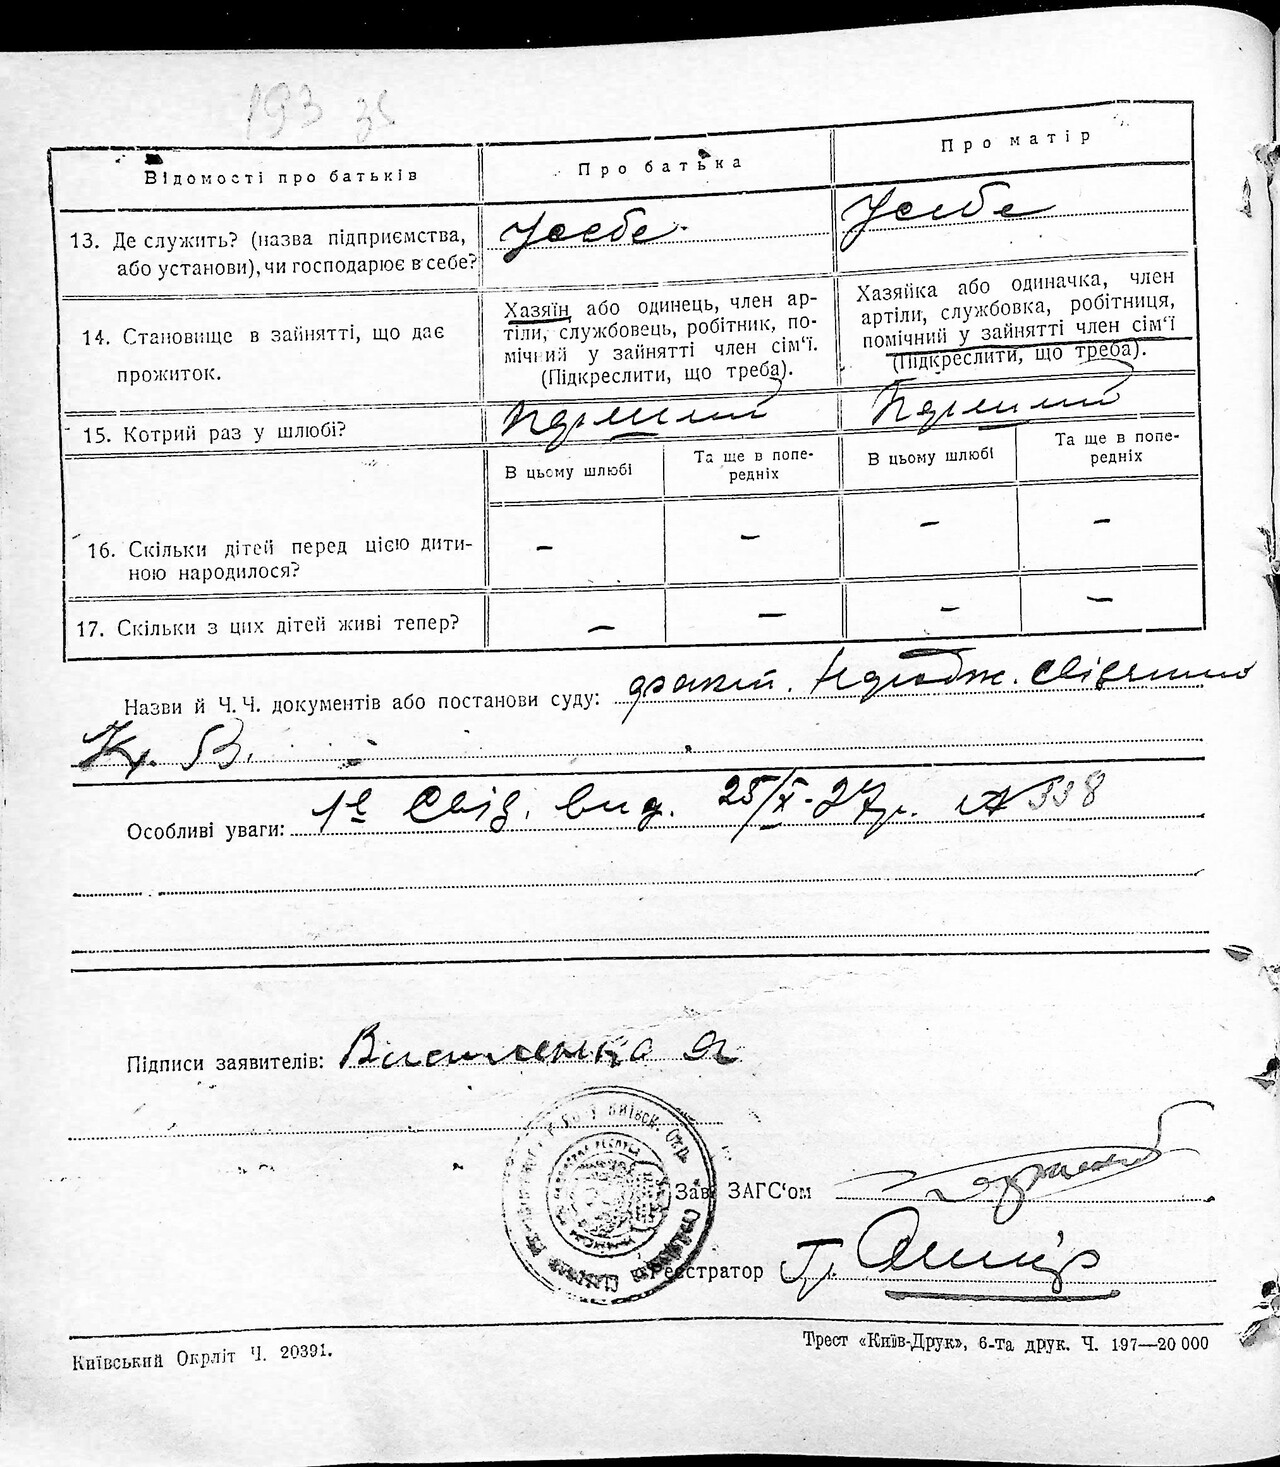 193 35
Відомості про батьків
Про батька
Про матір
13. Де служить? (назва підприємства,
або установи), чи господарює в себе?
У себе
У себе
14. Становище в зайнятті, що дає
прожиток.
Хазяїн або одинець, член ар-
тіли, службовець, робітник, по-
мічний у зайнятті член сім‘ї.
(Підкреслити, що треба).
Хазяйка або одиначка, член
артіли, службовка, робітниця,
помічний у зайнятті член сім‘ї
(Підкреслити, що треба).
15. Котрий раз у шлюбі?
В цьому шлюбі
Та ще в попе-
редніх
В цьому шлюбі
Та ще в попе-
редніх
16. Скільки дітей перед цією дити-
ною народилося?
– – – –
17. Скільки з цих дітей живі тепер?
– – – –
Назви й Ч. Ч. документів або постанови суду:
Кн. В.
Особливі уваги: 1е Свід. вид. 25/X-27р. № 338
Підписи заявителів: Василенко Я
Зав. ЗАГС‘ом
Реєстратор Гр.
Київський Окрліт Ч. 20391.
Трест «Київ-Друк», 6-та друк. Ч. 197—20 000